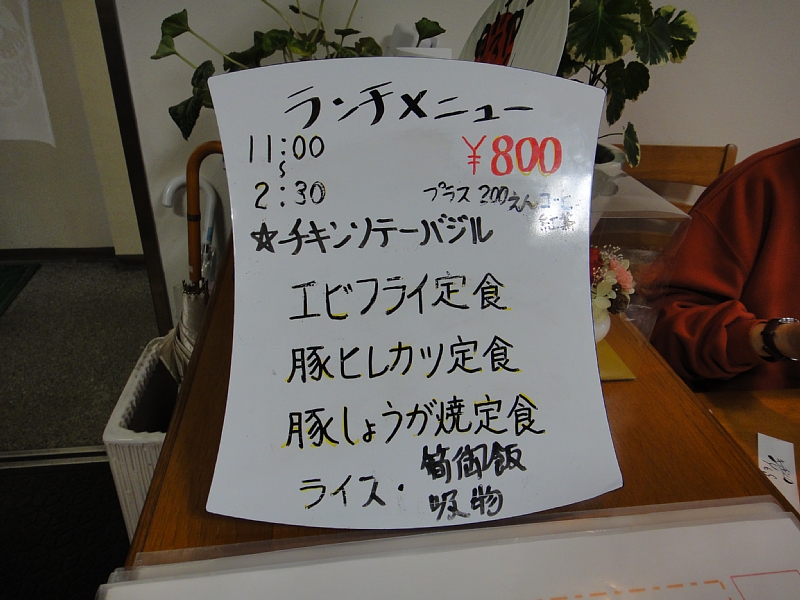 ランチメニュー
11:00
~
2:30
¥800
プラス 200えんコーヒー
紅茶
☆チキンソテーバジル
エビフライ定食
豚ヒレカツ定食
豚しょうが焼定食
ライス・筍御飯
吸物